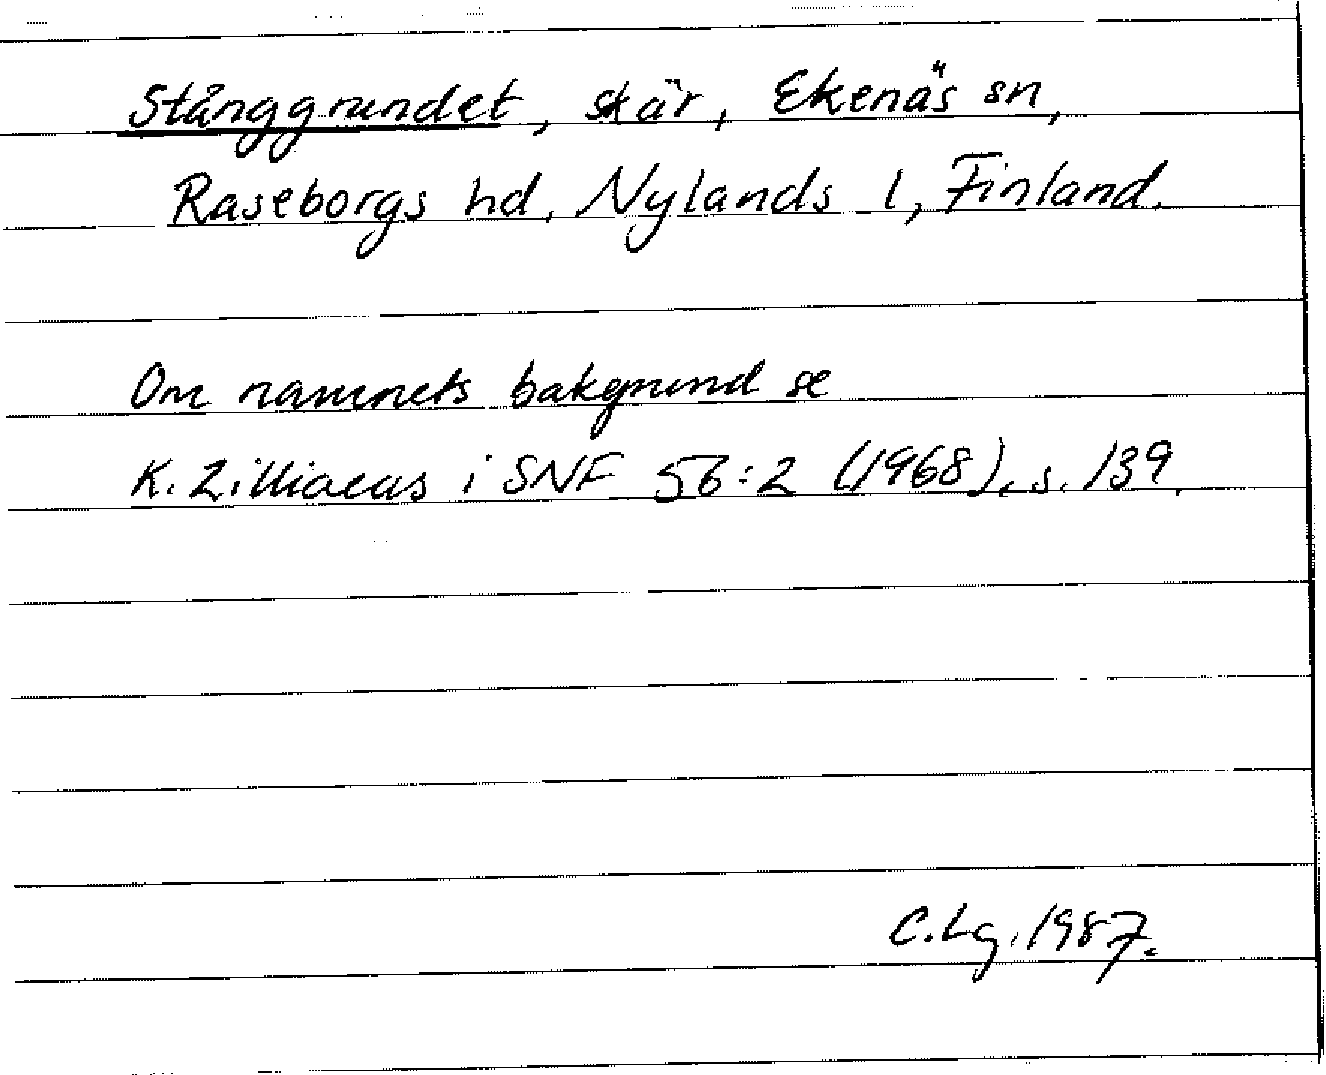 Stånggrundet, skär, Ekenäs sn,
Raseborgs hd, Nylands l, Finland.
Om namnets bakgrund se
K. Zilliacus i SNF 56:2 (1968), s. 139.
C.Lg. 1987.